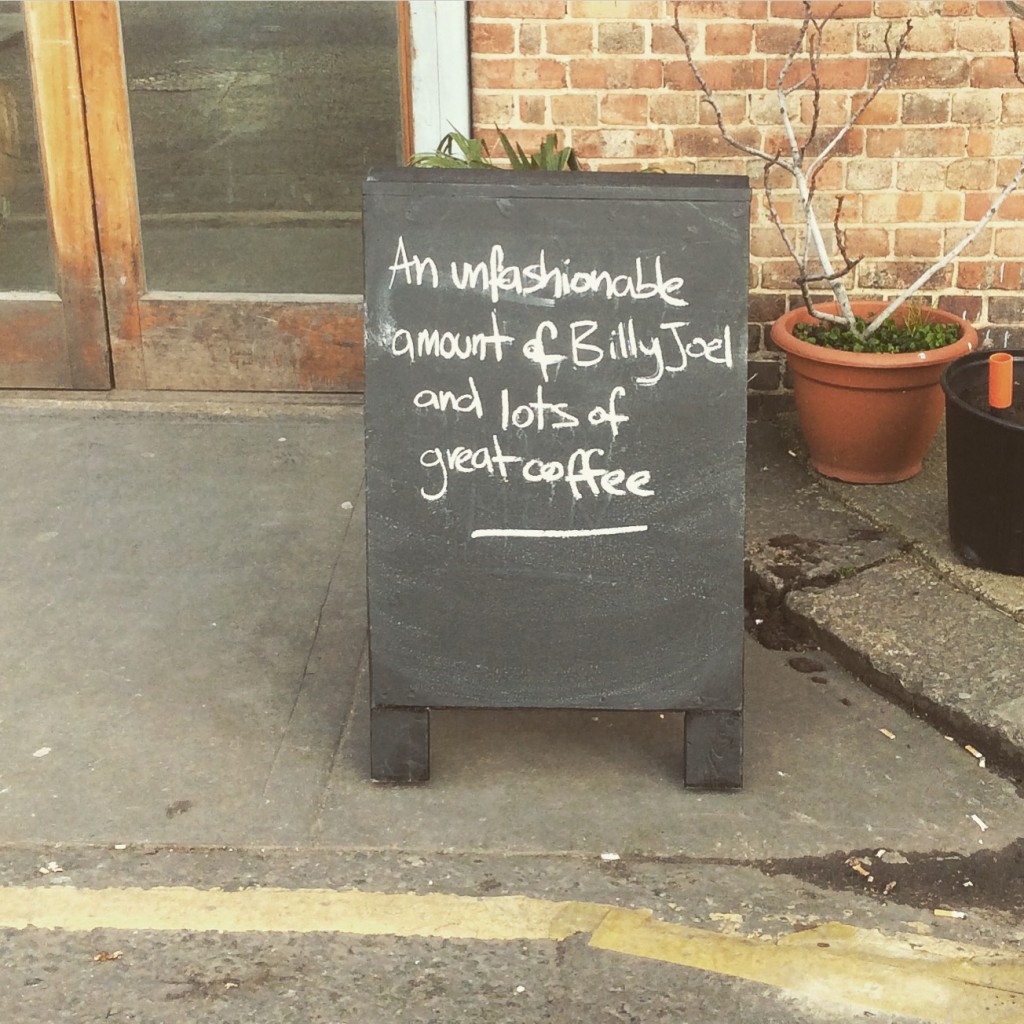 An unfashionable
amount of Billy Joel
and lots of
great coffee